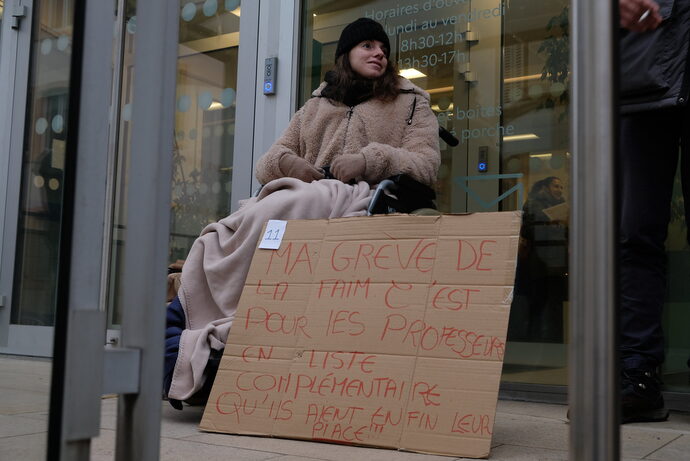 Horaires d'ouv
lundi au vendredi
8h30-12h
13h30-17h
boîtes
porche
11
MA GREVE DE
LA FAIM C'EST
POUR LES PROFESSEURS
EN LISTE
COMPLEMENTAIRE
QU'ILS AIENT ENFIN LEUR
PLACE!!!